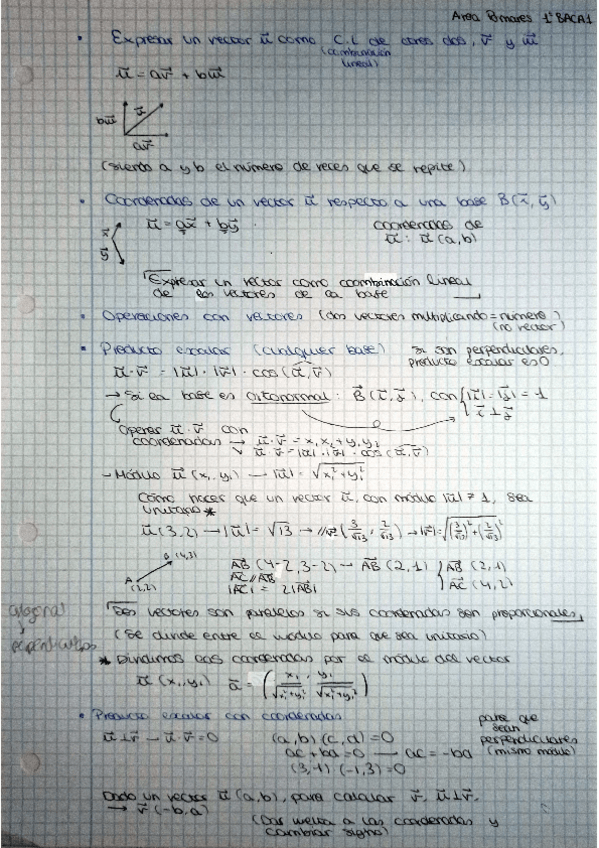 Area Pomares 1º BACA1
• Expresar un vector u⃗ como C.L de otros dos, v⃗ y w⃗
(combinación lineal)
u⃗ = av⃗ + bw⃗
bw⃗ u⃗
av⃗
(siendo a y b el número de veces que se repite)
• Coordenadas de un vector u⃗ respecto a una base B(x⃗, y⃗)
x⃗ u⃗ = ax⃗ + by⃗ coordenadas de
y⃗ u⃗ : u⃗ (a,b)
Expresar un vector como coombinación lineal
de los vectores de la base
• Operaciones con vectores (dos vectores multiplicando = número)
(no vector)
• Producto escalar (cualquier base) si son perpendiculares,
producto escalar es 0
u⃗ · v⃗ = |u⃗| · |v⃗| · cos(u⃗, v⃗)
→ Si la base es ortonormal: B⃗ (i⃗, j⃗), con |i⃗| = |j⃗| = 1
i⃗ ⊥ j⃗
Operar u⃗ · v⃗ con
coordenadas → u⃗ · v⃗ = x₁x₂ + y₁y₂
u⃗ · v⃗ = |u⃗| · |v⃗| · cos (u⃗, v⃗)
- Módulo u⃗ (x₁, y₁) → |u⃗| = √x₁² + y₁²
Cómo hacer que un vector u⃗, con módulo |u⃗| ≠ 1, sea
unitario *
u⃗ (3,2) → |u⃗| = √13 → v⃗ (3/√13, 2/√13) → |v⃗| = √(3/√13)² + (2/√13)²
B (4,3)
A (2,2)
AB⃗ (4-2, 3-2) → AB⃗ (2,1) AB⃗ (2,1)
AC⃗ // AB⃗ AC⃗ (4,2)
|AC⃗| = 2|AB⃗|
ortogonal
perpendiculares
Dos vectores son paralelos si sus coordenadas son proporcionales,
(Se divide entre el módulo para que sea unitario)
* Dividimos las coordenadas por el módulo del vector
u⃗ (x₁, y₁) a⃗ = (x₁/√x₁²+y₁², y₁/√x₁²+y₁²)
• Producto escalar con coordenadas
u⃗ ⊥ v⃗ → u⃗ · v⃗ = 0 (a,b) (c,d) = 0
ac + bd = 0 → ac = -bd
(3,-1) (-1,3) = 0
para que
sean
perpendiculares
(mismo módulo)
Dado un vector u⃗ (a,b), para calcular v⃗, u⃗ ⊥ v⃗.
→ v⃗ (-b,a)
(Dar vuelta a las coordenadas y
cambiar signo)